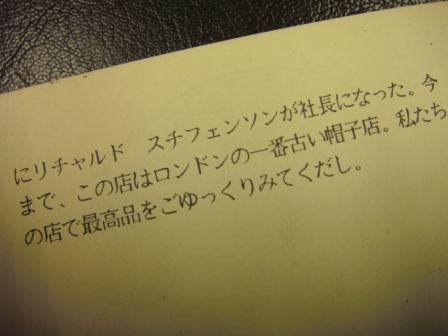 にリチャルド　スチフェンソンが社長になった。今
まで、この店はロンドンの一番古い帽子店。私たち
の店で最高品をごゆっくりみてくだし。